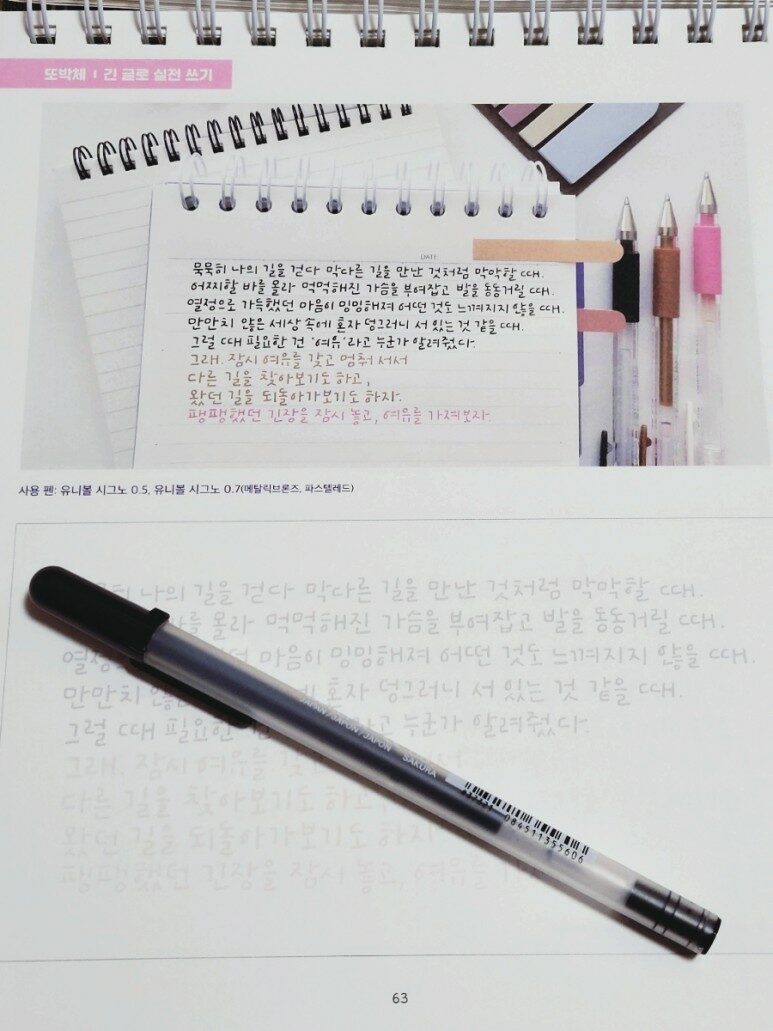 또박체 | 긴 글로 실전 쓰기
DATE
묵묵히 나의 길을 걷다 막다른 길을 만난 것처럼 막막할 때.
어찌할 바를 몰라 먹먹해진 가슴을 부여잡고 발을 동동거릴 때.
열정으로 가득했던 마음이 밍밍해져 어떤 것도 느껴지지 않을 때.
만만치 않은 세상 속에 혼자 덩그러니 서 있는 것 같을 때.
그럴 때 필요한 건 '여유'라고 누군가 알려줬다.
그래. 잠시 여유를 갖고 멈춰 서서
다른 길을 찾아보기도 하고,
왔던 길을 되돌아가보기도 하지.
팽팽했던 긴장을 잠시 놓고, 여유를 가져보자.
사용 펜: 유니볼 시그노 0.5, 유니볼 시그노 0.7(메탈릭브론즈, 파스텔레드)
나의 길을 걷다 막다른 길을 만난 것처럼 막막할 때.
바를 몰라 먹먹해진 가슴을 부여잡고 발을 동동거릴 때.
열정 마음이 밍밍해져 어떤 것도 느껴지지 않을 때.
만만치 혼자 덩그러니 서 있는 것 같을 때.
그럴 때 필요한 누군가 알려줬다.
그래. 잠시 여유를
다른 길을 찾아보기도 하고
왔던 길을 되돌아가보기도 하지
팽팽했던 긴장을 잠시 놓고, 여유를
JAPAN/JAPON/JAPÓN SAKURA
084511355606
63